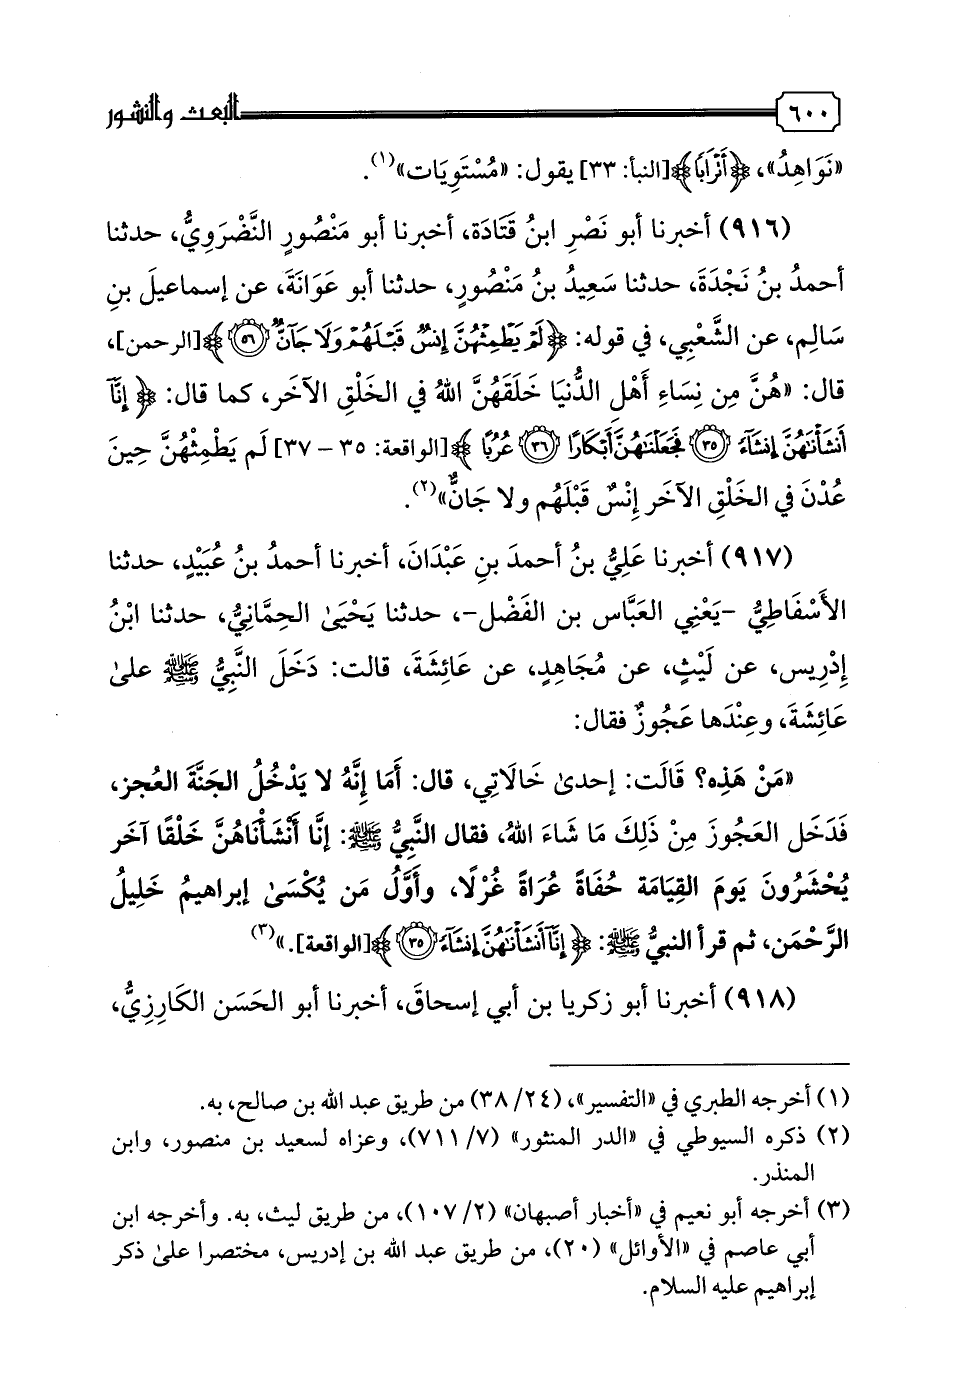 ٦٠٠ البعث والنشور
«نَوَاهِدُ»، ﴿أَتْرَابًا﴾ [النبأ: ٣٣] يقول: «مُسْتَوِيَات»(١).
(٩١٦) أخبرنا أبو نَصْرِ ابنُ قَتَادَة، أخبرنا أبو مَنْصُورٍ النَّضْرَوِيُّ، حدثنا
أحمدُ بنُ نَجْدَةَ، حدثنا سَعِيدُ بنُ مَنْصُورٍ، حدثنا أبو عَوَانَةَ، عن إسماعيلَ بنِ
سَالِمٍ، عن الشَّعْبِي، في قوله: ﴿لَمْ يَطْمِثْهُنَّ إِنسٌ قَبْلَهُمْ وَلَا جَآنٌّ ٥٦﴾ [الرحمن]،
قال: «هُنَّ مِن نِسَاءِ أَهْلِ الدُّنيَا خَلَقَهُنَّ اللهُ في الخَلْقِ الآخَر، كما قال: ﴿إِنَّآ
أَنشَأْنَٰهُنَّ إِنشَآءً ٣٥ فَجَعَلْنَٰهُنَّ أَبْكَارًا ٣٦ عُرُبًا﴾ [الواقعة: ٣٥ – ٣٧] لَم يَطْمِثْهُنَّ حِينَ
عُدْنَ في الخَلْقِ الآخَر إِنْسٌ قَبْلَهُم ولا جَانٌّ»(٢).
(٩١٧) أخبرنا عَلِيُّ بنُ أحمدَ بنِ عَبْدَانَ، أخبرنا أحمدُ بنُ عُبَيْدٍ، حدثنا
الأَسْفَاطِيُّ -يَعْنِي العَبَّاس بن الفَضْل-، حدثنا يَحْيَىٰ الحِمَّانِيُّ، حدثنا ابْنُ
إِدْرِيس، عن لَيْثٍ، عن مُجَاهِدٍ، عن عَائِشَةَ، قالت: دَخَلَ النَّبِيُّ ﷺ علىٰ
عَائِشَةَ، وعِنْدَها عَجُوزٌ فقال:
«مَنْ هَذِه؟ قَالَت: إحدىٰ خَالَاتِي، قال: أَمَا إِنَّهُ لا يَدْخُلُ الجَنَّةَ العُجز،
فَدَخَل العَجُوزَ مِنْ ذَلِكَ مَا شَاءَ اللهُ، فقال النَّبِيُّ ﷺ: إنَّا أَنْشَأْنَاهُنَّ خَلْقًا آخَر
يُحْشَرُونَ يَومَ القِيَامَة حُفَاةً عُرَاةً غُرْلًا، وأَوَّلُ مَن يُكْسَىٰ إبراهيمُ خَلِيلُ
الرَّحْمَن، ثم قرأ النبيُّ ﷺ: ﴿إِنَّآ أَنشَأْنَٰهُنَّ إِنشَآءً ٣٥﴾ [الواقعة].»(٣)
(٩١٨) أخبرنا أبو زكريا بن أبي إسحاق، أخبرنا أبو الحَسَن الكَارِزِيُّ،
(١) أخرجه الطبري في «التفسير»، (٢٤/ ٣٨) من طريق عبد الله بن صالح، به.
(٢) ذكره السيوطي في «الدر المنثور» (٧/ ٧١١)، وعزاه لسعيد بن منصور، وابن
المنذر.
(٣) أخرجه أبو نعيم في «أخبار أصبهان» (٢/ ١٠٧)، من طريق ليث، به. وأخرجه ابن
أبي عاصم في «الأوائل» (٢٠)، من طريق عبد الله بن إدريس، مختصرا علىٰ ذكر
إبراهيم عليه السلام.